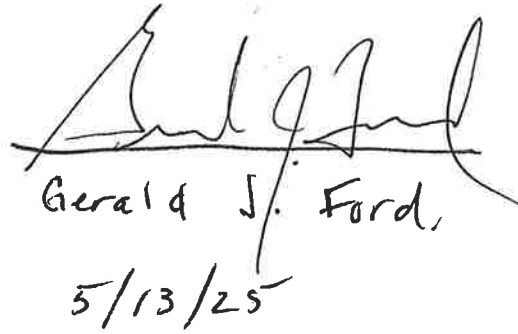 Gerald J. Ford
Gerald J. Ford,
5/13/25